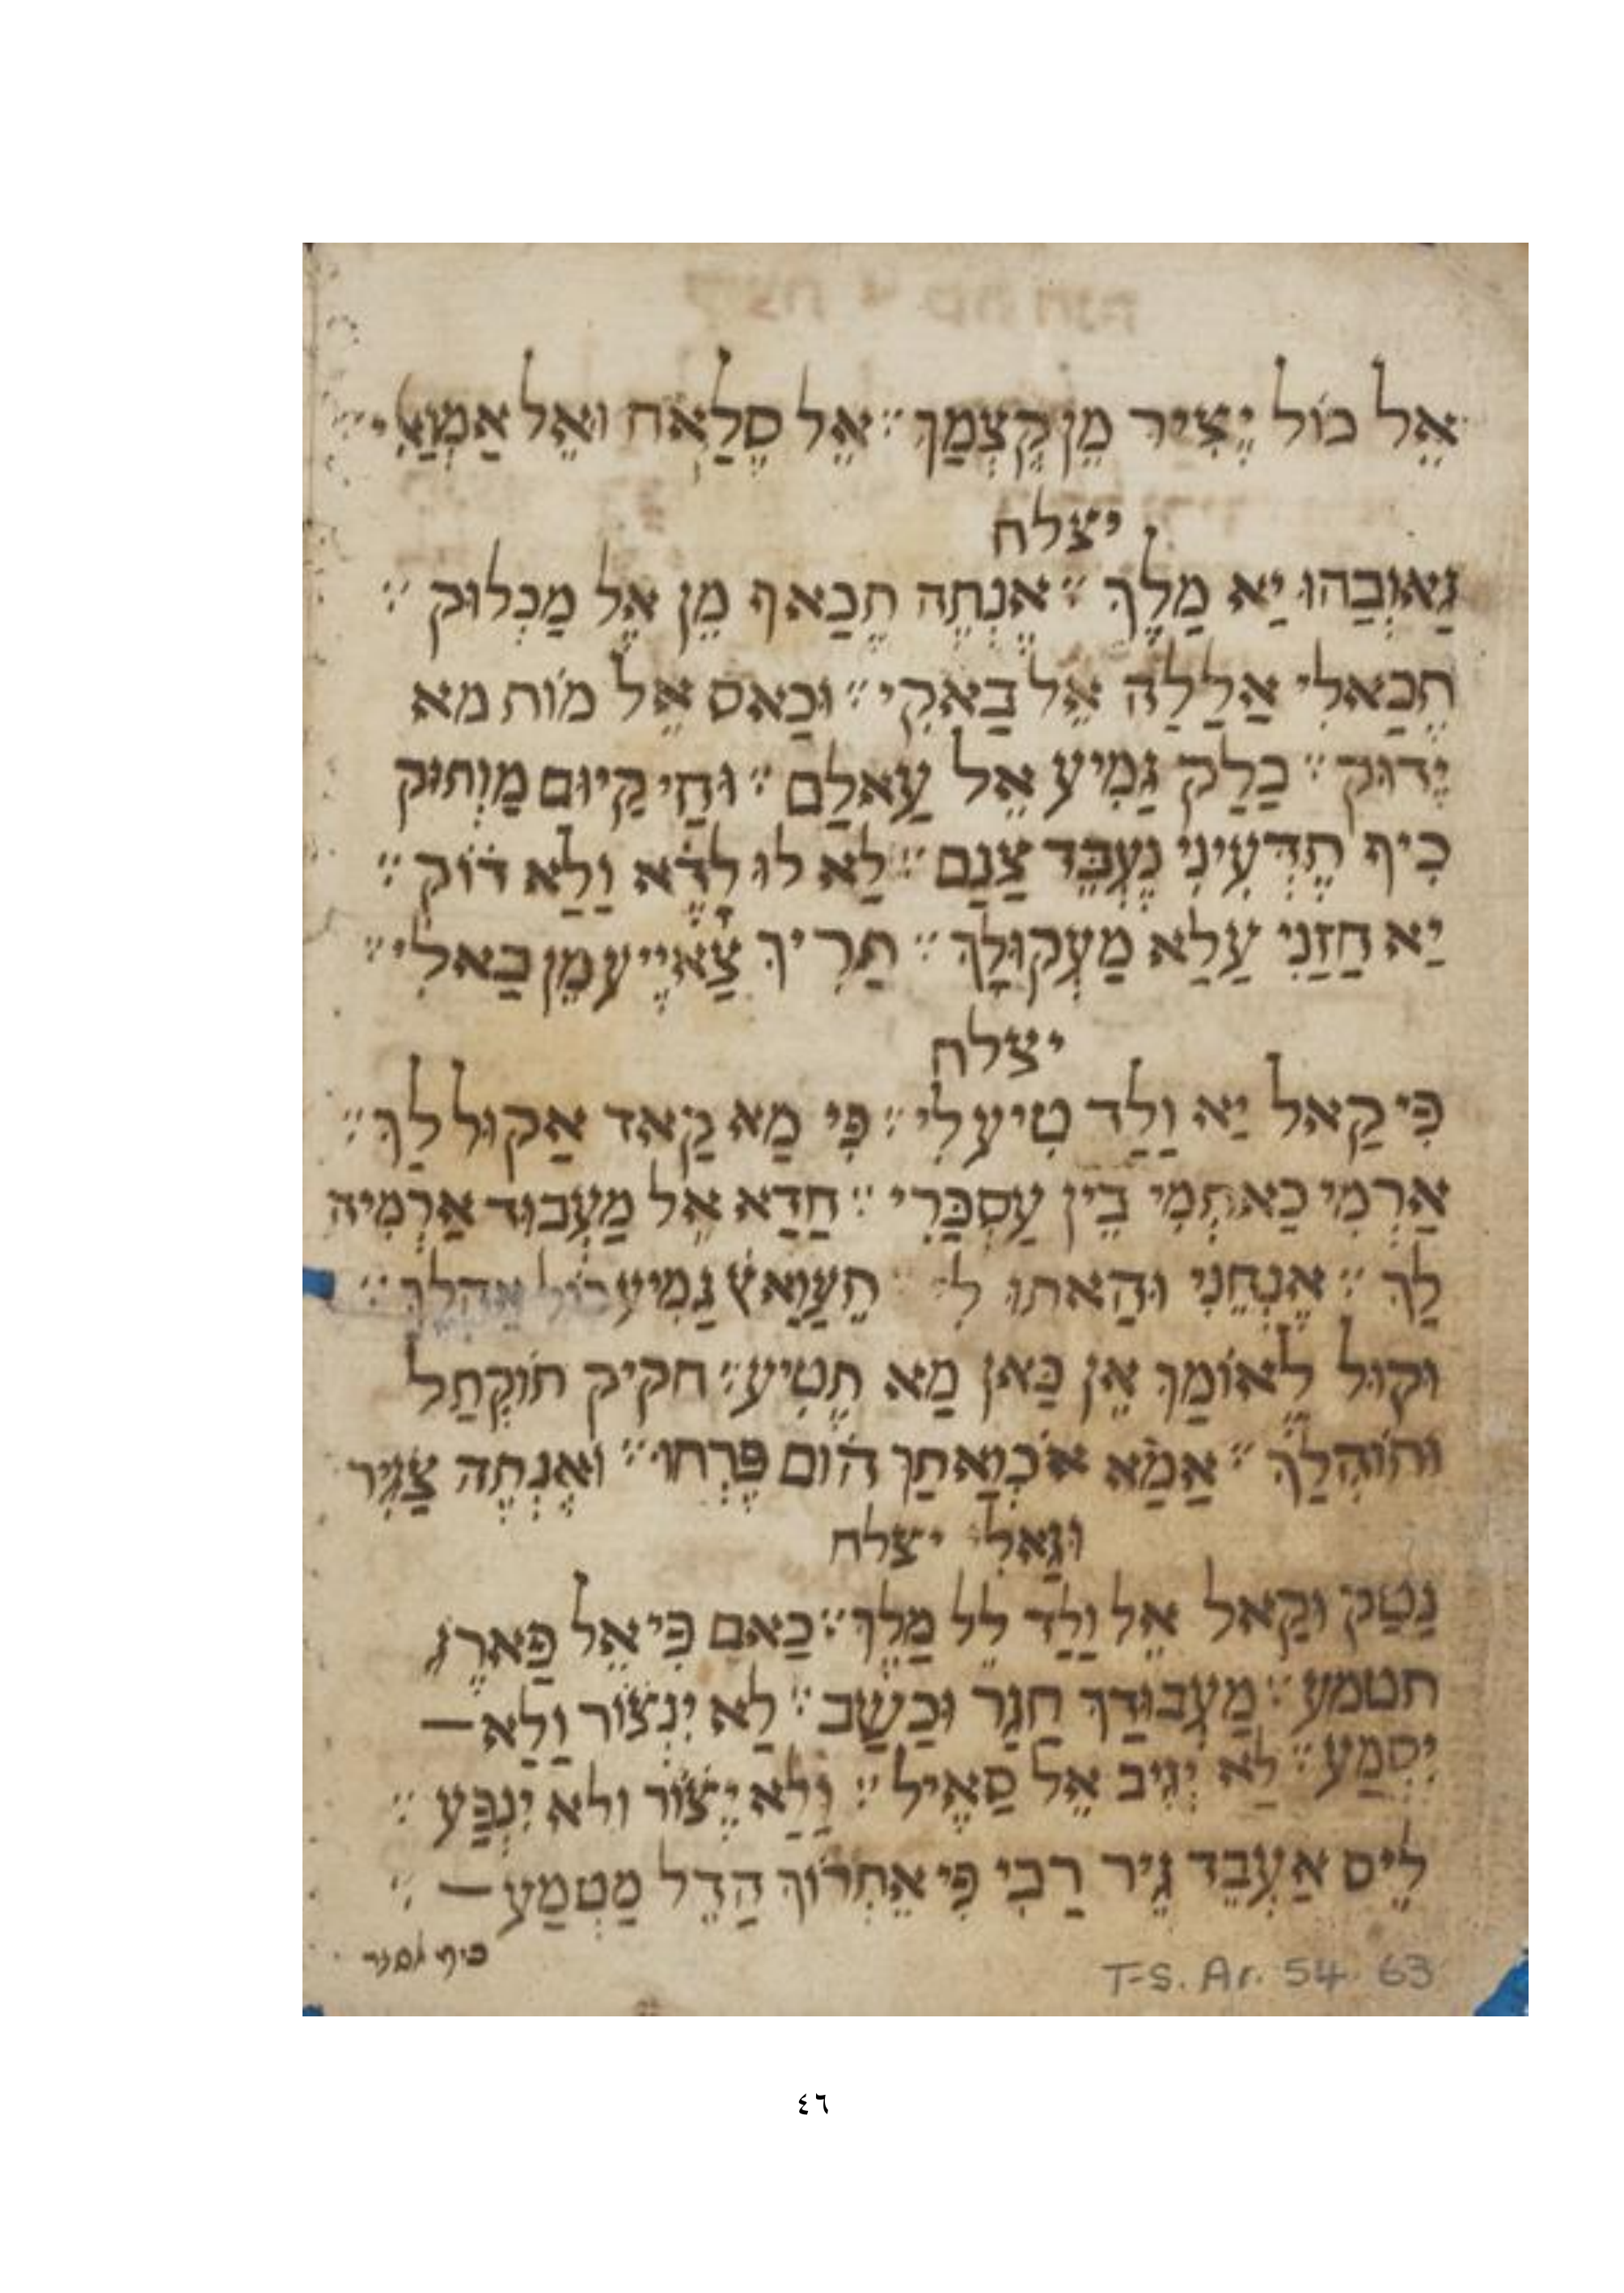 אֵל כּוֹל יֶצִיר מֵן קֶצְמַךְ ׃ אֵל סֶלַאח ואֵל אַמְוַאלִי ׃
יצלח
גַאוְבַהוּ יַא מַלֶךְ ׃ אֶנְתֶה תֶכַאף מֵן אֶל מַכְלוּק ׃
תֶכַאלִי אַלַלַה אֵל בַאקִי ׃ וּכַאס אֵל מוֹת מא
יְדוּק ׃ כַלַק גַמִיע אֵל עַאלַם ׃ וּחַי קַיוּם מַוְתוּק
כִיף תֶדְעִינִי נֶעְבֵד צַנַם ׃ לַא לוּ לֶדַא וַלַא דוֹק ׃
יַא חַזַנִי עַלַא מַעְקוּלַךְ ׃ תַרִיךְ צַאיֶיע מֵן בַאלִי ׃
יצלח
פִי קַאל יַא וַלַד טִיעלִי ׃ פִי מַא קַאד אַקוּל לַךְ ׃
אַרְמִי כַאתְמִי בֵין עַסְכַּרִי ׃ חַדַא אֵל מַעְבוּד אַרְמִיה
לַךְ ׃ אֶנְחֵנִי וּהַאתוּ לִי תֵעַוַאץ גַמִיע כוֹל אַהְלַךְ ׃
וקוּל לֶאוֹמַךְ אֵן כַּאן מַא תֶטִיע ׃ חקיק תוֹקְתַל
ותוֹהְלַךְ ׃ אַמַא אֹכְוַאתַךְ הוֹם פֶרְחוּ ׃ ואֶנְתֶה צַגִיר
וּגַאלִי יצלח
נַטַק וקַאל אֵל וַלַד לֵל מַלֶךְ ׃ כַאם פִי אֵל פַארֶג
תטמע ׃ מַעְבוּדַךְ חַגַר וּכַשַב ׃ לַא יִנְצוֹר וַלַא —
יִסְמַע ׃ לַא יְגִיב אֵל סַאֶיל ׃ וַלַא יֶצוֹר ולא יִנְפַע ׃
לֵיס אַעְבֵד גֵיר רַבִי פִי אֵתְרוֹךְ הַדֵל מַטְמַע — ׃
כיף אסגד
T-S. Ar. 54. 63
٤٦